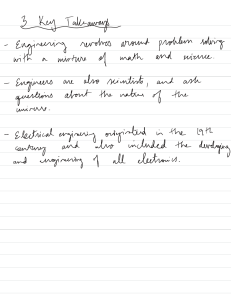 3 Key Takeaways
- Engineering revolves around problem solving
with a mixture of math and science.
- Engineers are also scientists, and ask
questions about the nature of the
universe.
- Electrical engineering originated in the 19th
century and also included the developing
and engineering of all electronics.